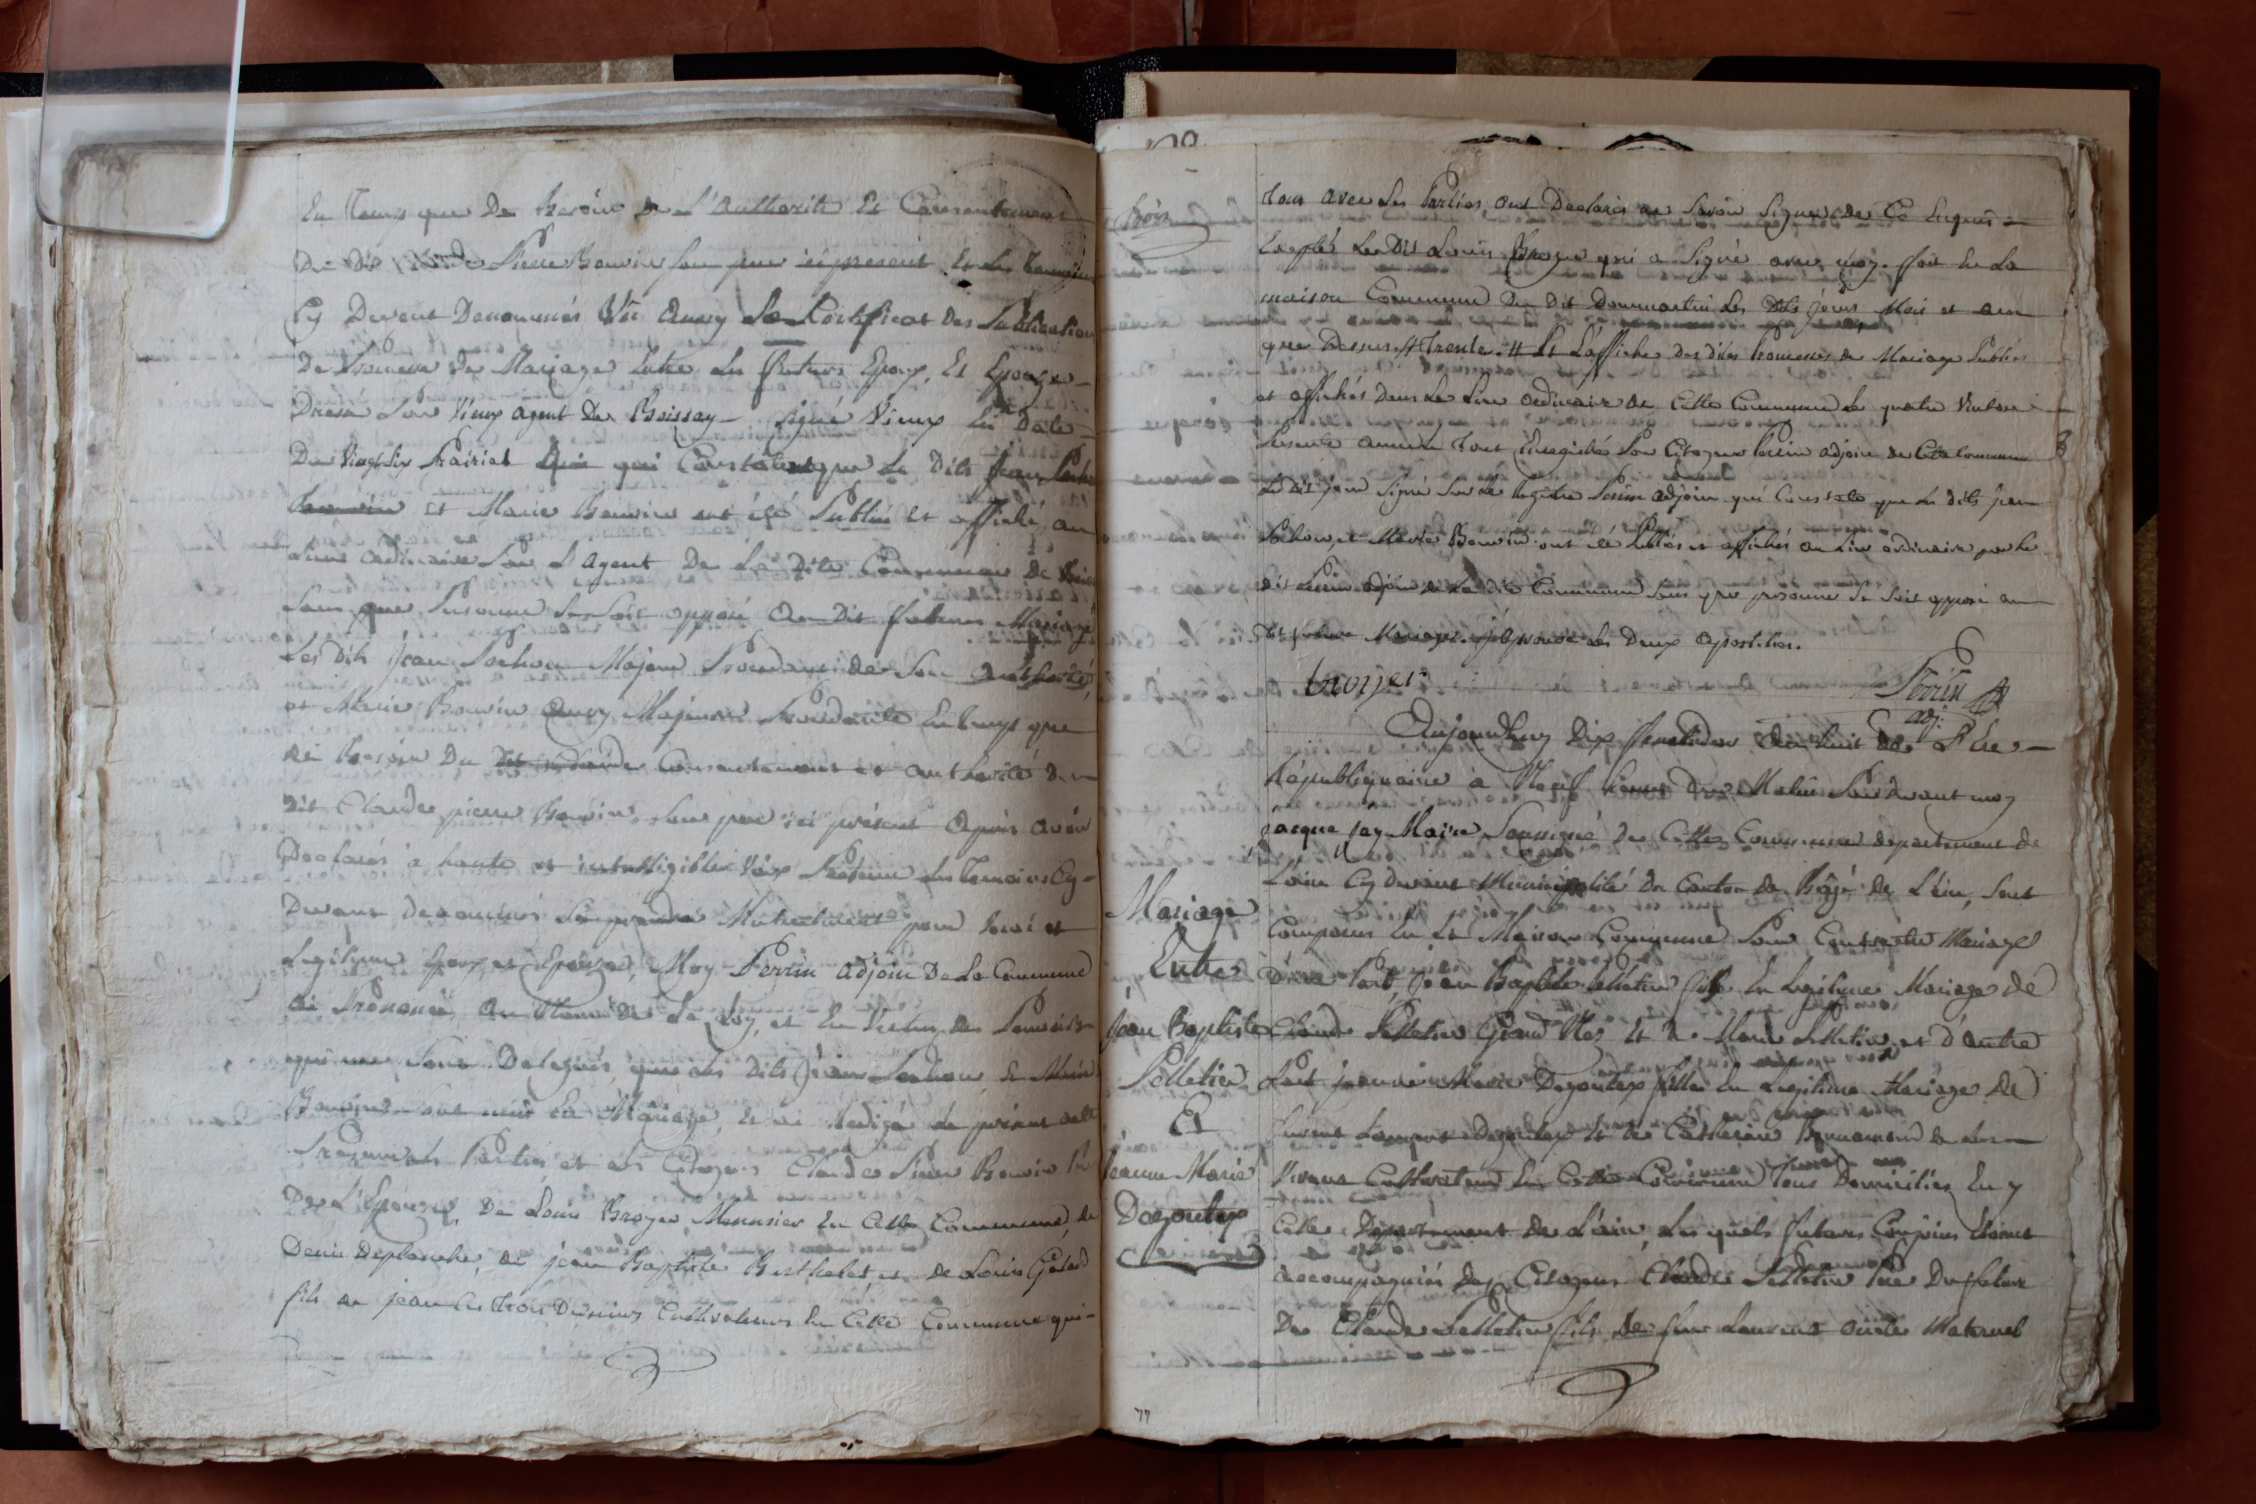 En tems que De besoin de l'authorité Et Consentement
Du dit Pierre Bouvier son pere ici present Et les temoins
Cy Devant Denommés Vû Aussy Le Certificat Des Publications
De Promesse De Mariage Entre les futurs Epoux, Et Epouze
Par Vieux agent De Boissey signé Vieux En Date
Du Vingt six Prairial qui Constate que Le Dits Jean
Et Marie Bouvier ont été Publié Et affiché au
Lieu ordinaire Par L'agent De La Dite Commune De
Sans que Personne Se Soit opposé Au Dit futur Mariage
Les Dits Jean Pochon Majeur Procedant de Son authorité
et Marie Bouvier Aussy Majeure Procedante En temps que
de Besoin Du Consentement et authorité du
dit Claude pierre Bouvier Son pere ici présent Après avoir
Declarés à haute et intelligible Voix Présence des Temoins Cy
Devant denommés Se prendre Mutuelement pour mari et
Legitime Epoux et Epouze, Moy Perrin adjoin De La Commune
ai Prononcé Au Nom De La Loy, et En Vertu des Pouvoirs
qui me Sont Delegués, que les Dits Jean Pochon & Marie
Bouvier sont unis En Mariage, Et ai Redigé Le présent acte
Présence des Parties et des Citoyens Claude Pierre Bouvier Pere
De L'Epouze, De Louis Broyer Menusier En Cette Commune, de
Denis Deplanche, de jean Baptiste Berthelet, et de Louis
fils de jean les trois Derniers Cultivateurs En Cette Commune qui
tous avec Les Parties ont Declarés ne Savoir Signer De Ce Enquis
Exceptés Le Dit Louis Broyer qui a Signé avec moy. fait En La
maison Commune Du Dit Dommartin Les Dits jours Mois et an
que Dessus. Et L'affiche Des Dites Promesses de Mariage Publiés
et affichés Dans Le Lieu ordinaire De Cette Commune Le quatre
Presente année tout Enregistrés Par Citoyen Perrin adjoin de Cette Commune
Le dit jour Signé Sur Le Registre Perrin adjoin qui Constate que Le dits jean
Pochon, et Marie Bouvier ont été Publiés et affichés au Lieu ordinaire par Le
dit Perrin adjoin de La Dite Commune Sans que personne Se Soit opposé au
dit futur Mariage. j'approuve les Deux apostilles.
broyer
Perrin
adj:
Aujourdhuy Dix fructidor An huit De L'Ere
Républiquaine à Neuf heures Du Matin Pardevant moy
jacque jay Maire Soussigné De Cette Commune departement de
L'ain Cy devant Municipalité du Canton de Bâgé De L'ain, Sont
Comparus En La Maison Commune Pour Contracter Mariage
D'une Part, Jean Baptiste Pelletier fils En Legitime Mariage De
Claude Pelletier Grand Nez Et De Marie Pelletier et d'autre
Part jeanne Marie Degoutex fille En Legitime Mariage De
Degoutex Et De Catherine
Vivans Cultivateurs En Cette Commune Tous Domiciliés En y
Celle Departement De L'ain, Les quels futurs Conjoins Etoient
accompagniés Des Citoyens Claude Pelletier Pere Du futur
De Claude Pelletier fils De feu Laurent oncle Maternel
Mariage
Entre
Jean Baptiste
Pelletier
Et
Jeanne Marie
Degoutex
77